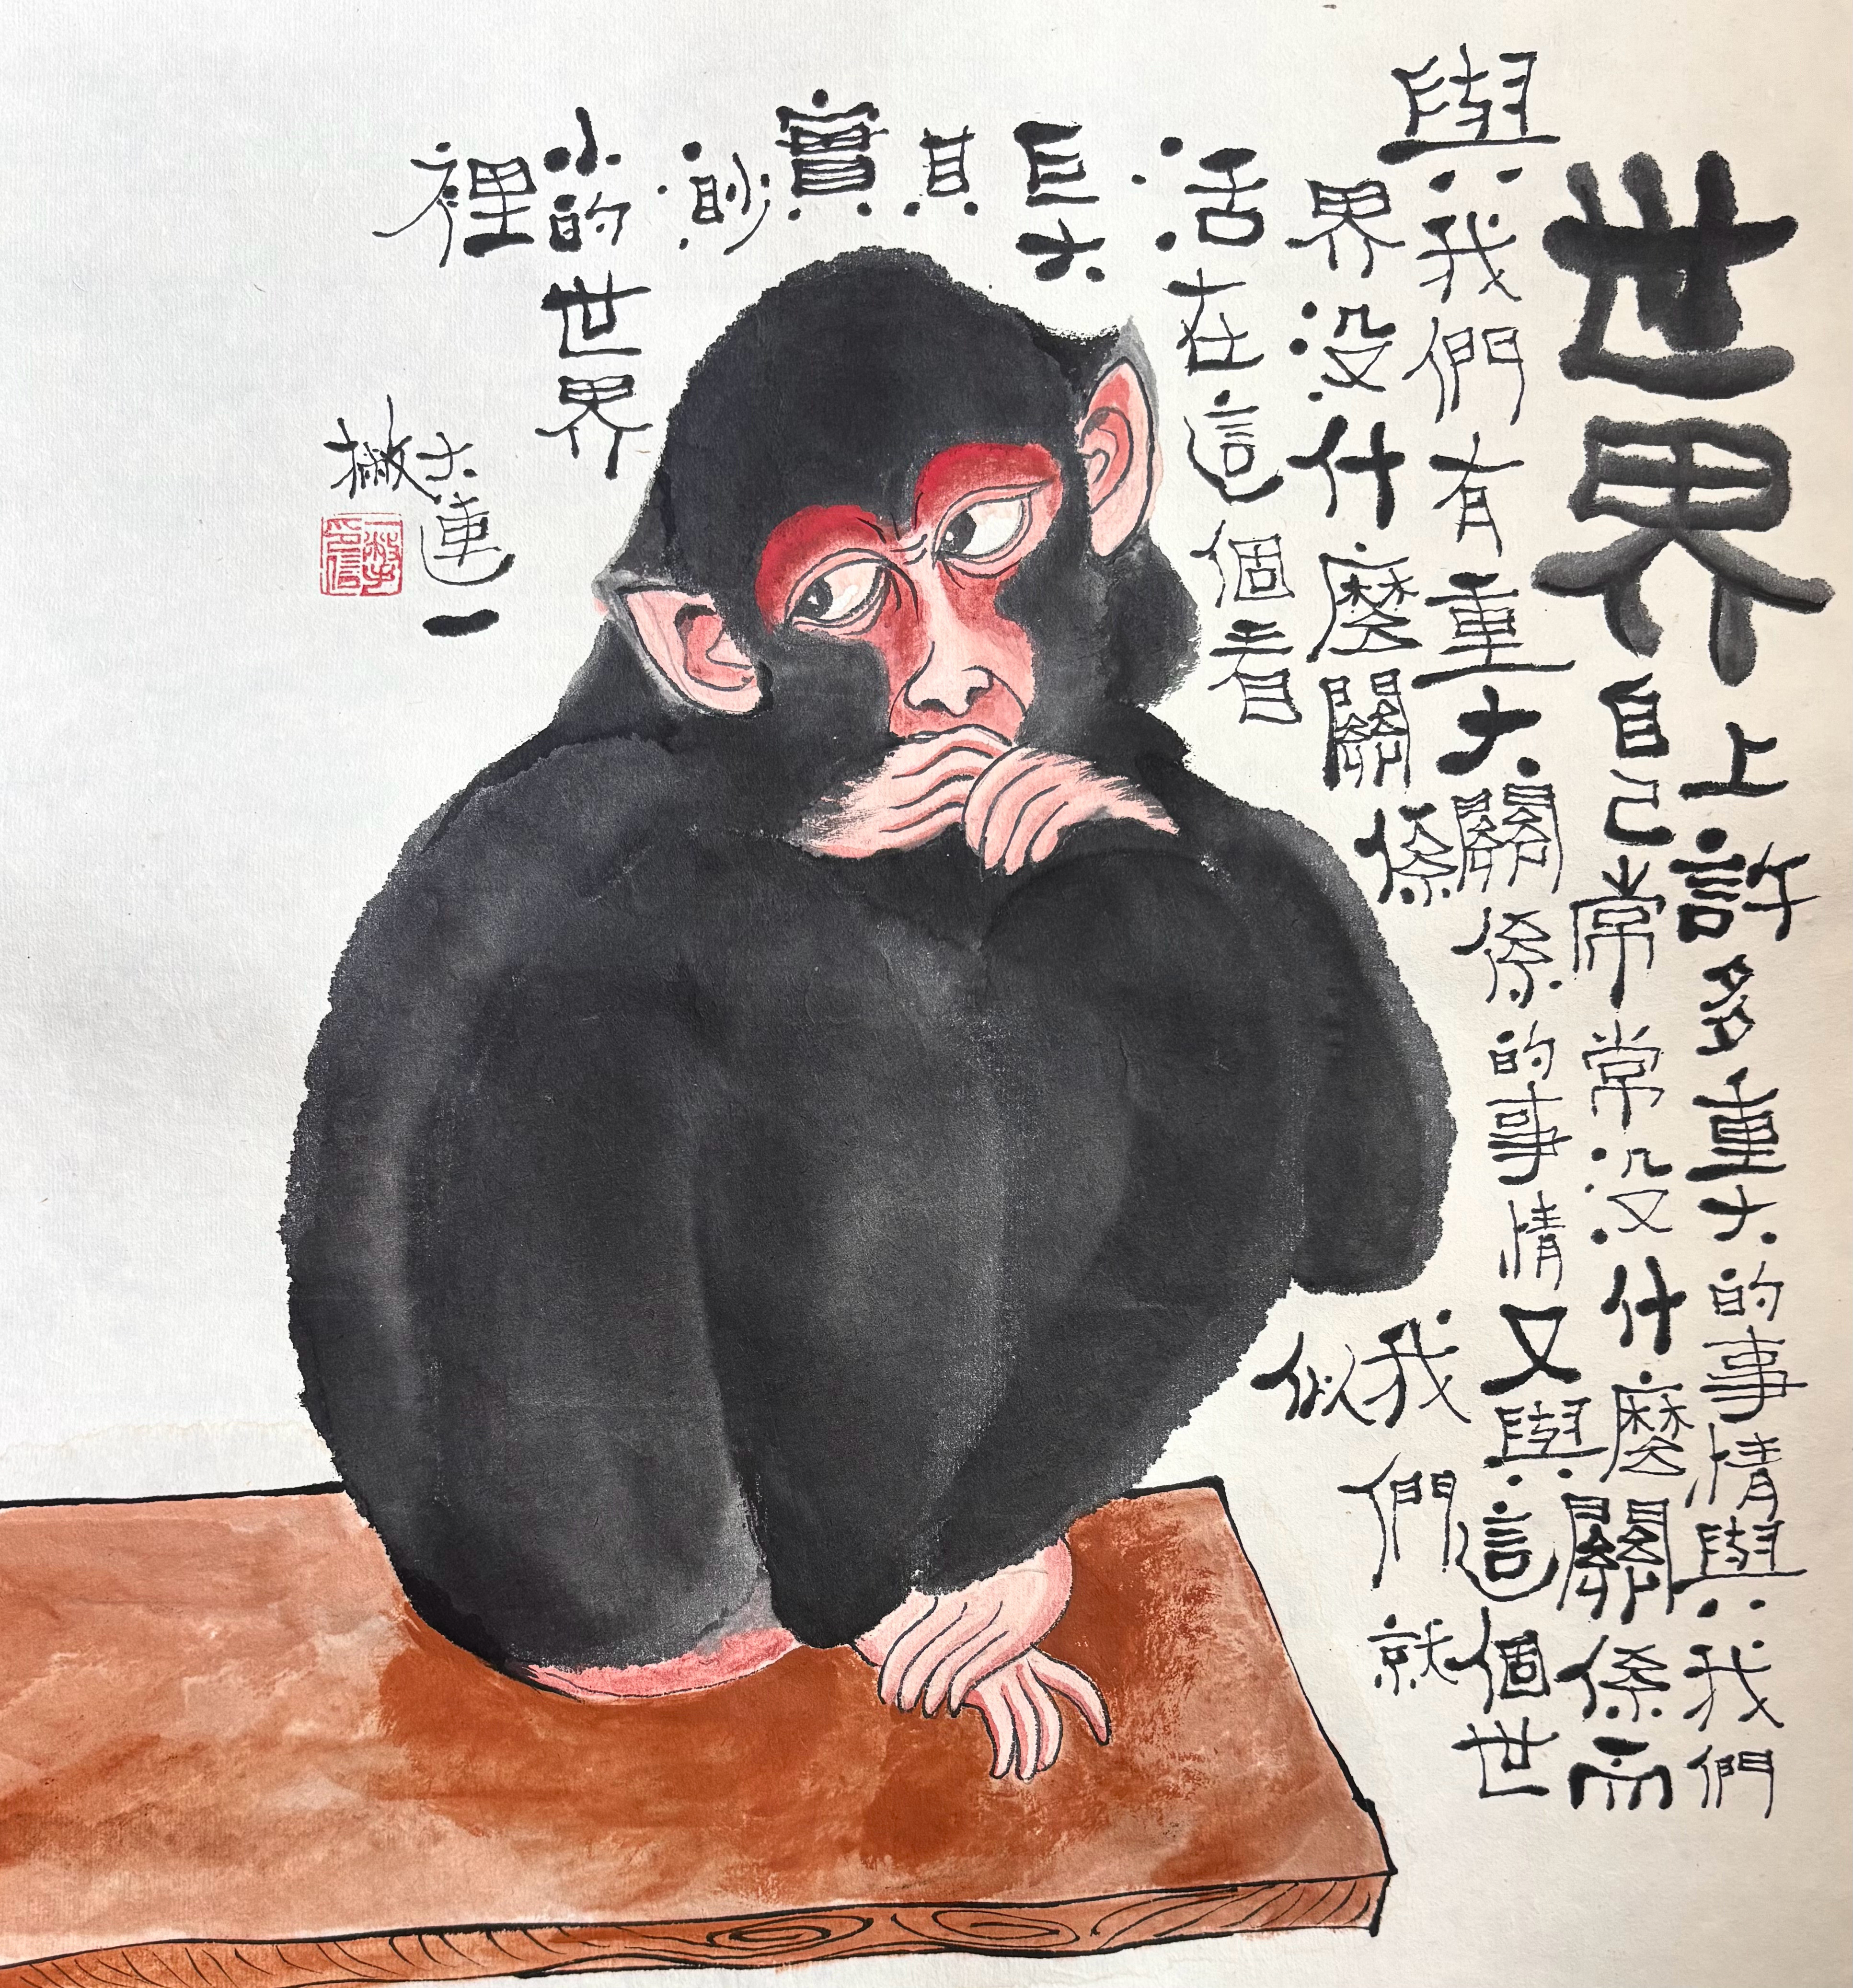 世界
上許多重大的事情與我們
自己常常没什麼關係而
與我們有重大關係的事情又與這個世
界没什麼關係我們就
活在這個看似
巨大
其
實
渺
小的世界
裡
大連一
撇